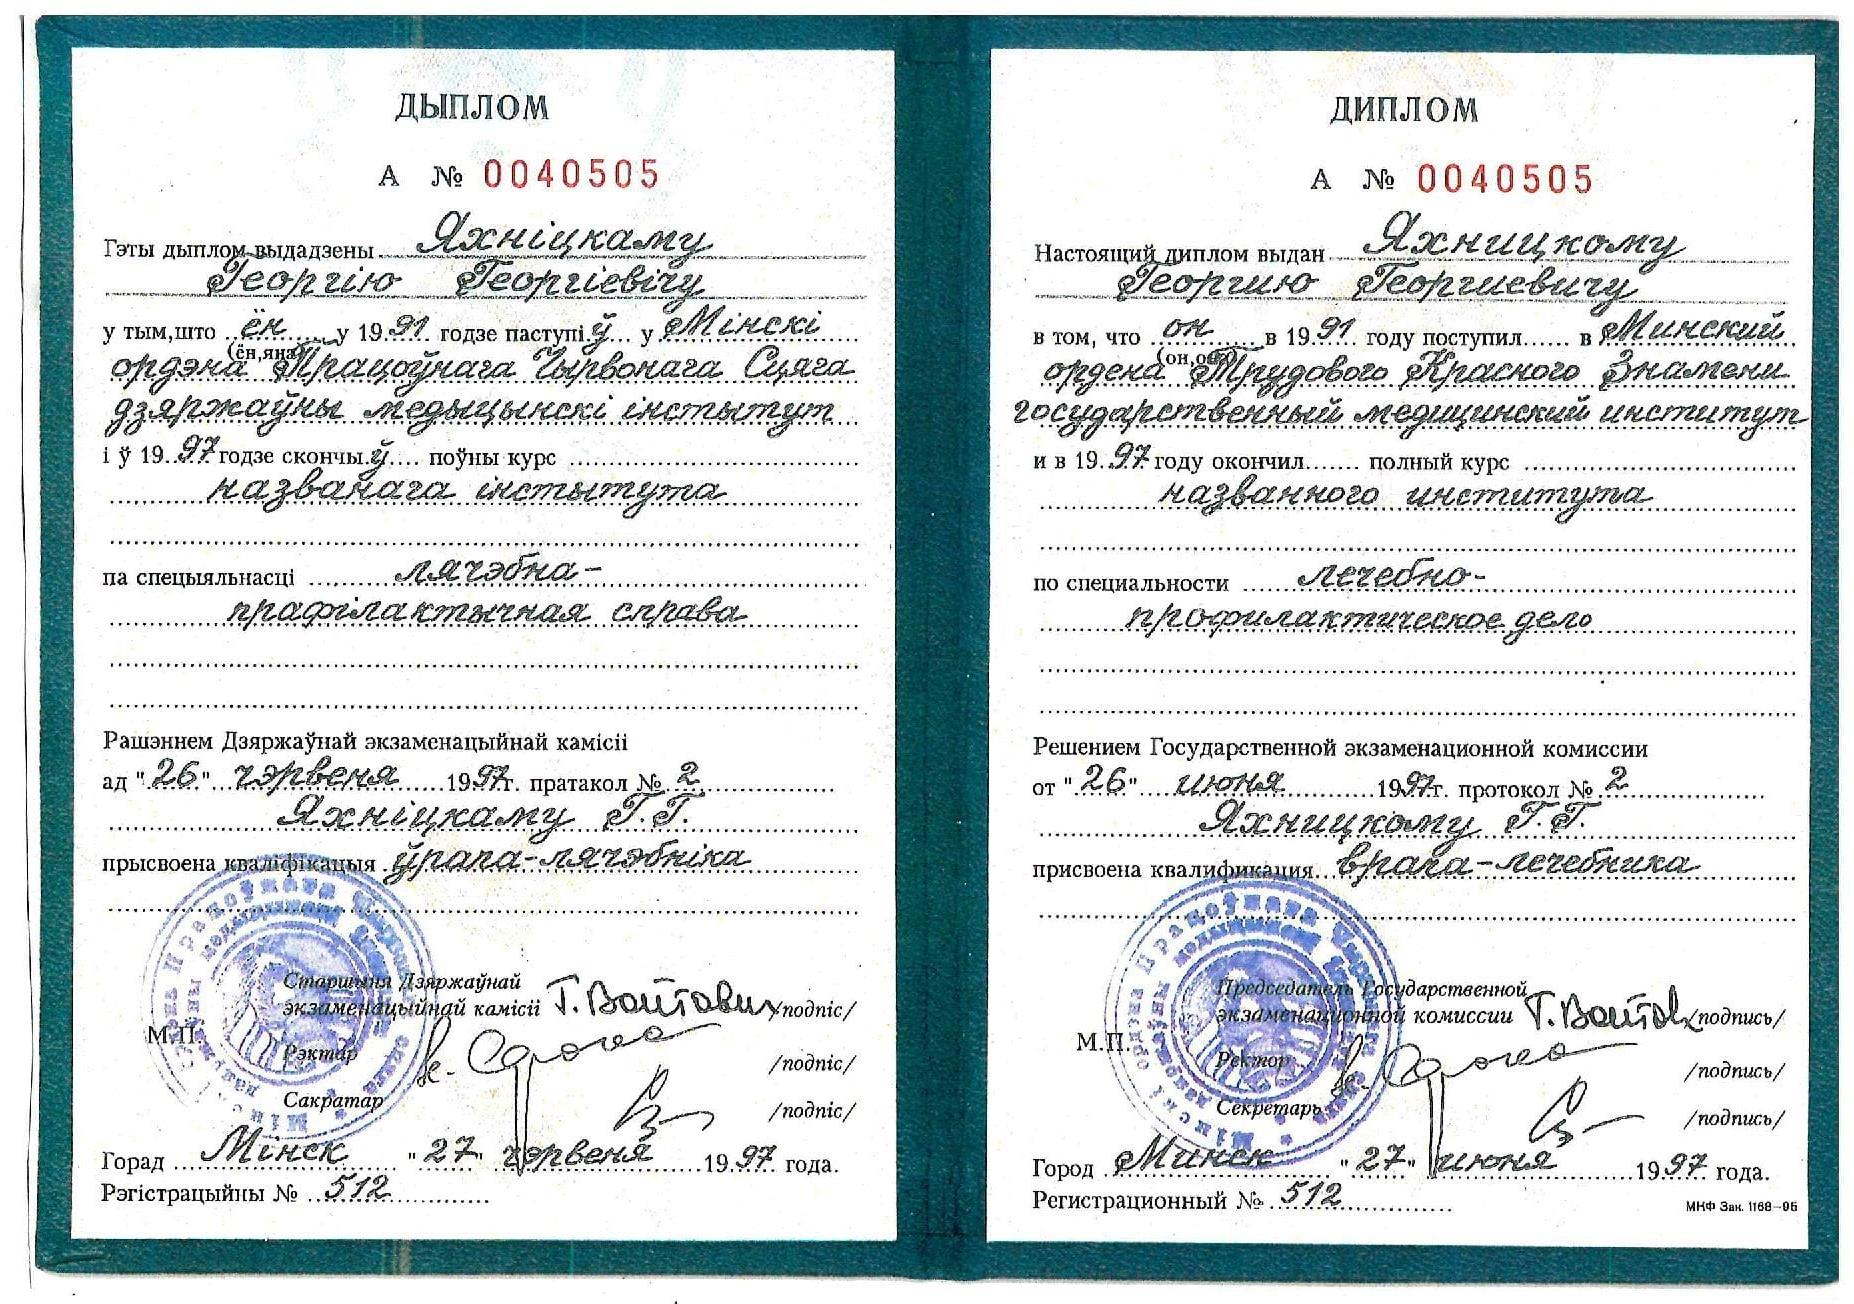 ДЫПЛОМ
А № 0040505
Гэты дыплом выдадзены Яхніцкаму
Георгію Георгіевічу
у тым, што ён у 1991 годзе паступіў у Мінскі
(ён, яна)
ордэна Працоўнага Чырвонага Сцяга
дзяржаўны медыцынскі інстытут
і ў 1997 годзе скончыў поўны курс
названага інстытута
па спецыяльнасці лячэбна-
прафілактычная справа
Рашэннем Дзяржаўнай экзаменацыйнай камісіі
ад "26" чэрвеня 1997г. пратакол № 2
Яхніцкаму Г.Г.
прысвоена кваліфікацыя ўрача-лячэбніка
Старшыня Дзяржаўнай
экзаменацыйнай камісіі Г. Вайтовіч /подпіс/
М.П.
Рэктар /подпіс/
Сакратар /подпіс/
Горад Мінск "27" чэрвеня 1997 года.
Рэгістрацыйны № 512
ДИПЛОМ
А № 0040505
Настоящий диплом выдан Яхницкому
Георгию Георгиевичу
в том, что он в 1991 году поступил в Минский
(он, она)
ордена Трудового Красного Знамени
государственный медицинский институт
и в 1997 году окончил полный курс
названного института
по специальности лечебно-
профилактическое дело
Решением Государственной экзаменационной комиссии
от "26" июня 1997г. протокол № 2
Яхницкому Г.Г.
присвоена квалификация врача-лечебника
Председатель Государственной
экзаменационной комиссии /подпись/
М.П.
Ректор /подпись/
Секретарь /подпись/
Город Минск "27" июня 1997 года.
Регистрационный № 512
МНФ Зак. 1168—95